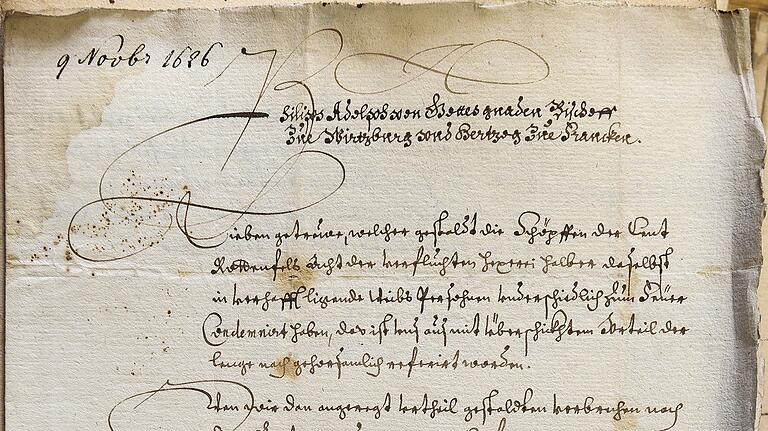 9 Novbr 1626
Philips Adolph von Gottes gnaden Bischoff
Zue Wirtzburg vnd Hertzog Zue Francken.
Lieben getreuwe, welcher gestaldt die Schöpffen der Cent
Rottenfels Acht der verfluchten hexerei halber daselbst
in verhafft ligende Weibs Persohnen vnderschiedlich zum Feüer
Condemnirt haben, das ist vns auß mit überschicktem Vrteil der
lenge nach gehorsamlich referirt worden.
Wan wir dan angeregt Vrtheil gestaldten verbrechen nach